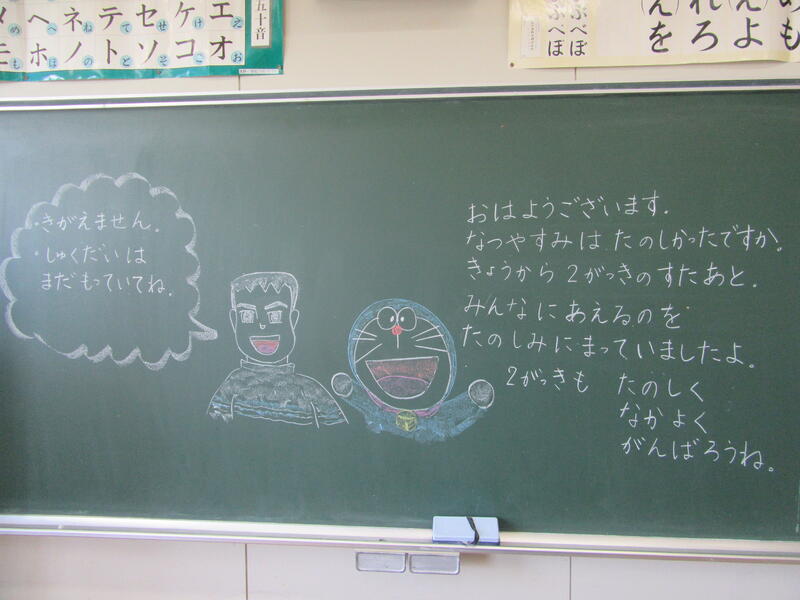 五十音
エ ケ セ テ ネ ヘ メ
え け せ て ね へ め
オ コ ソ ト ノ ホ モ
お こ そ と の ほ も
ぶべぼ
ぷぺぽ
・きがえません。
・しゅくだいは
まだもっていてね。
おはようございます。
なつやすみは たのしかったですか。
きょうから 2がっきのすたあと。
みんなにあえるのを
たのしみにまっていましたよ。
2がっきも たのしく
なかよく
がんばろうね。